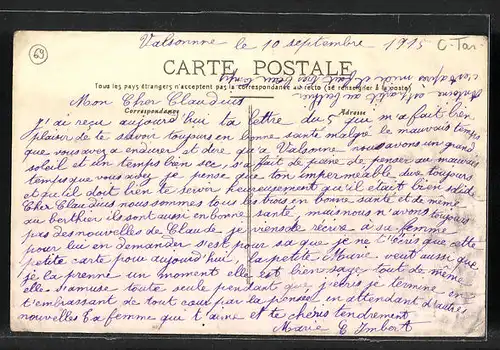 69
C-Tar
Valsonne le 10 septembre 1915
CARTE POSTALE
Tous les pays étrangers n'acceptent pas la correspondance au recto (se renseigner à la poste)
Mon Cher Claudius
Correspondance
Adresse
J'ai reçu aujourd'hui ta lettre du 5 qui m'a fait bien
plaisir de te savoir toujours en bonne santé malgré le mauvais temps
que vous avez a endurer et dire qu'a Valsonne nous avons un grand
soleil et un temps bien sec, sa fait de peine de penser au mauvais
temps que vous avez je pense que ton imperméable dure toujours
et qu'il doit bien te servir heureusement qu'il était bien solide
Cher Claudius nous sommes tous les trois en bonne santé et de même
au berthier ils sont aussi en bonne santé, mais nous n'avons toujours
pas des nouvelles de Claude je viens de écrire a sa femme
pour lui en demander s'est pour sa que je ne t'écris que cette
petite carte pour aujourd'hui, la petite veut aussi que
je la prenne un moment elle est bien sage tout de même
elle s'amuse toute seule pendant que j'écris je termine en
t'embrassant de tout cœur par la pensée en attendant d'autres
nouvelles Ta femme qui t'aime et te chéris tendrement
Marie C Imbert